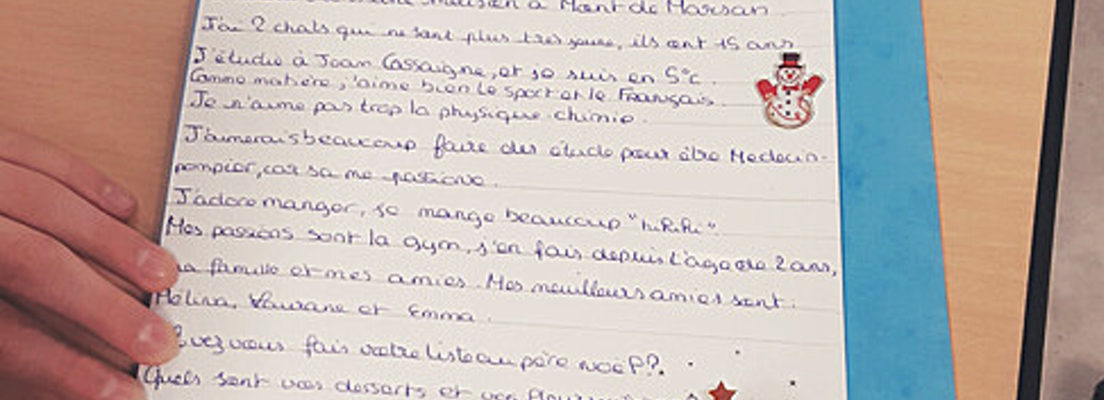 maison à Mont de Marsan
J'ai 2 chats qui ne sont plus tres jeune, ils ont 15 ans
J'étudie à Jean Cassaigne, et je suis en 5°c.
Comme matière, j'aime bien le sport et le Français.
Je n'aime pas trop la physique chimie.
J'aimerais beaucoup faire des étude pour être Medecin-
pompier, car sa me passione.
J'adore manger, je mange beaucoup "hihihi".
Mes passions sont la gym, j'en fais depuis l'age de 2 ans,
ma famille et mes amies. Mes meuilleurs amies sont:
Mélina, et Emma.
Avez vous fais votre liste au père noël??
Quels sont vos desserts et vos